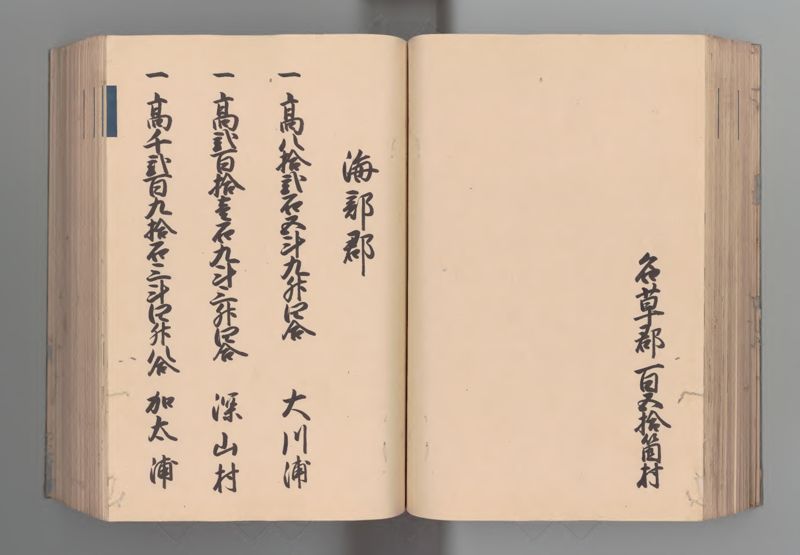 名草郡 百五拾箇村
海部郡
一 高八拾弐石五斗九升四合 大川浦
一 高弐百拾壱石九斗三升四合 深山村
一 高千弐百九拾石三斗四升八合 加太浦